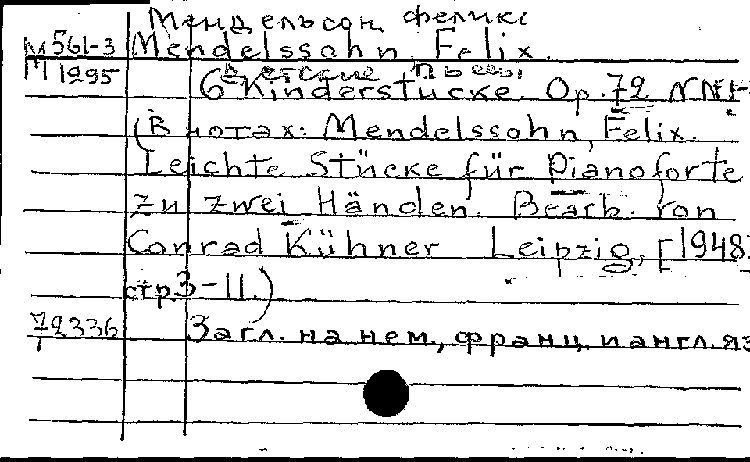 Мендельсон, Феликс
М 561-3 Mendelssohn, Felix.
М 1295
Детские пьесы
6 Kinderstücke. Op. 72 NN1-
(В нотах: Mendelssohn, Felix.
Leichte Stücke für Pianoforte
zu zwei Händen. Bearb. von
Conrad Kühner Leipzig, [1948.
стр. 3-11.)
72336 Загл. на нем., франц. и англ. яз